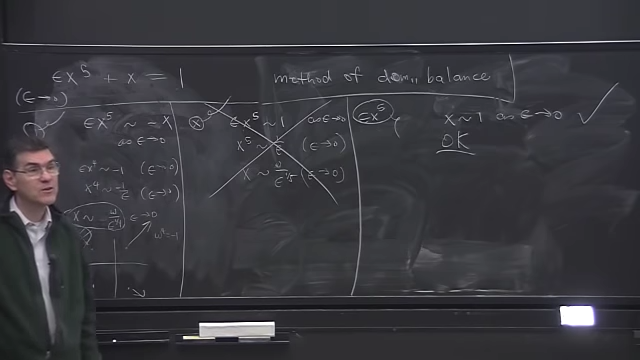 εx⁵ + x = 1
method of dom. balance
(ε→0)
εx⁵ ~ -x
as ε→0
εx⁴ ~ -1 (ε→0)
x⁴ ~ -1/ε (ε→0)
x ~ ω/ε^{1/4} ε→0
ω⁴=-1
εx⁵ ~ 1 as ε→0
x⁵ ~ 1/ε (ε→0)
x ~ ω/ε^{1/5} (ε→0)
εx⁵
x ~ 1 as ε→0 ✓
OK